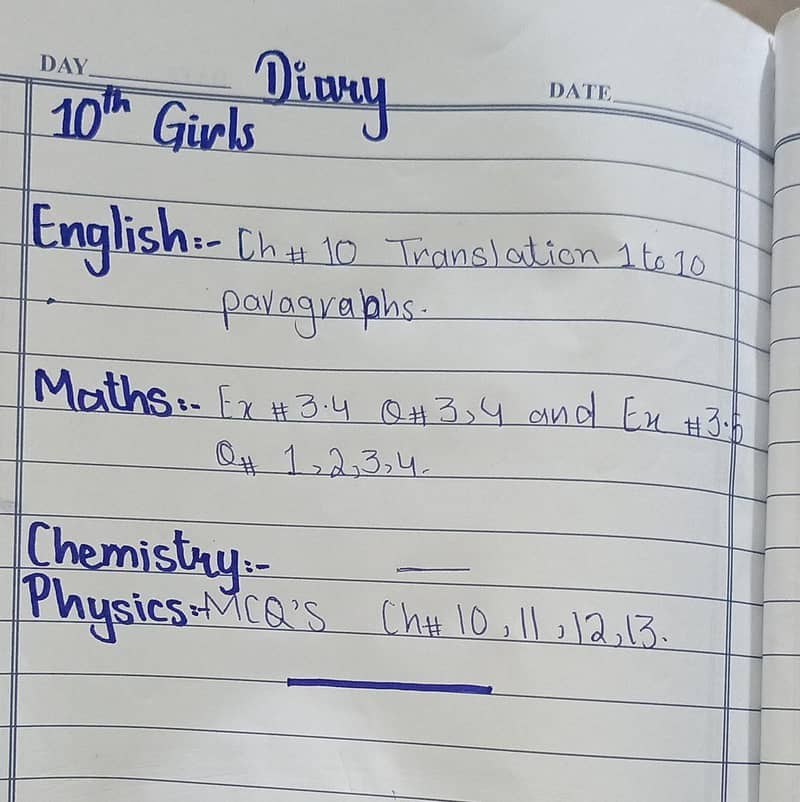 DAY Diary DATE
10th Girls
English:- Ch # 10 Translation 1 to 10
paragraphs.
Maths:- Ex # 3.4 Q# 3,4 and Ex #3.6
Q# 1,2,3,4.
Chemistry:- —
Physics:- MCQ'S Ch# 10, 11, 12, 13.